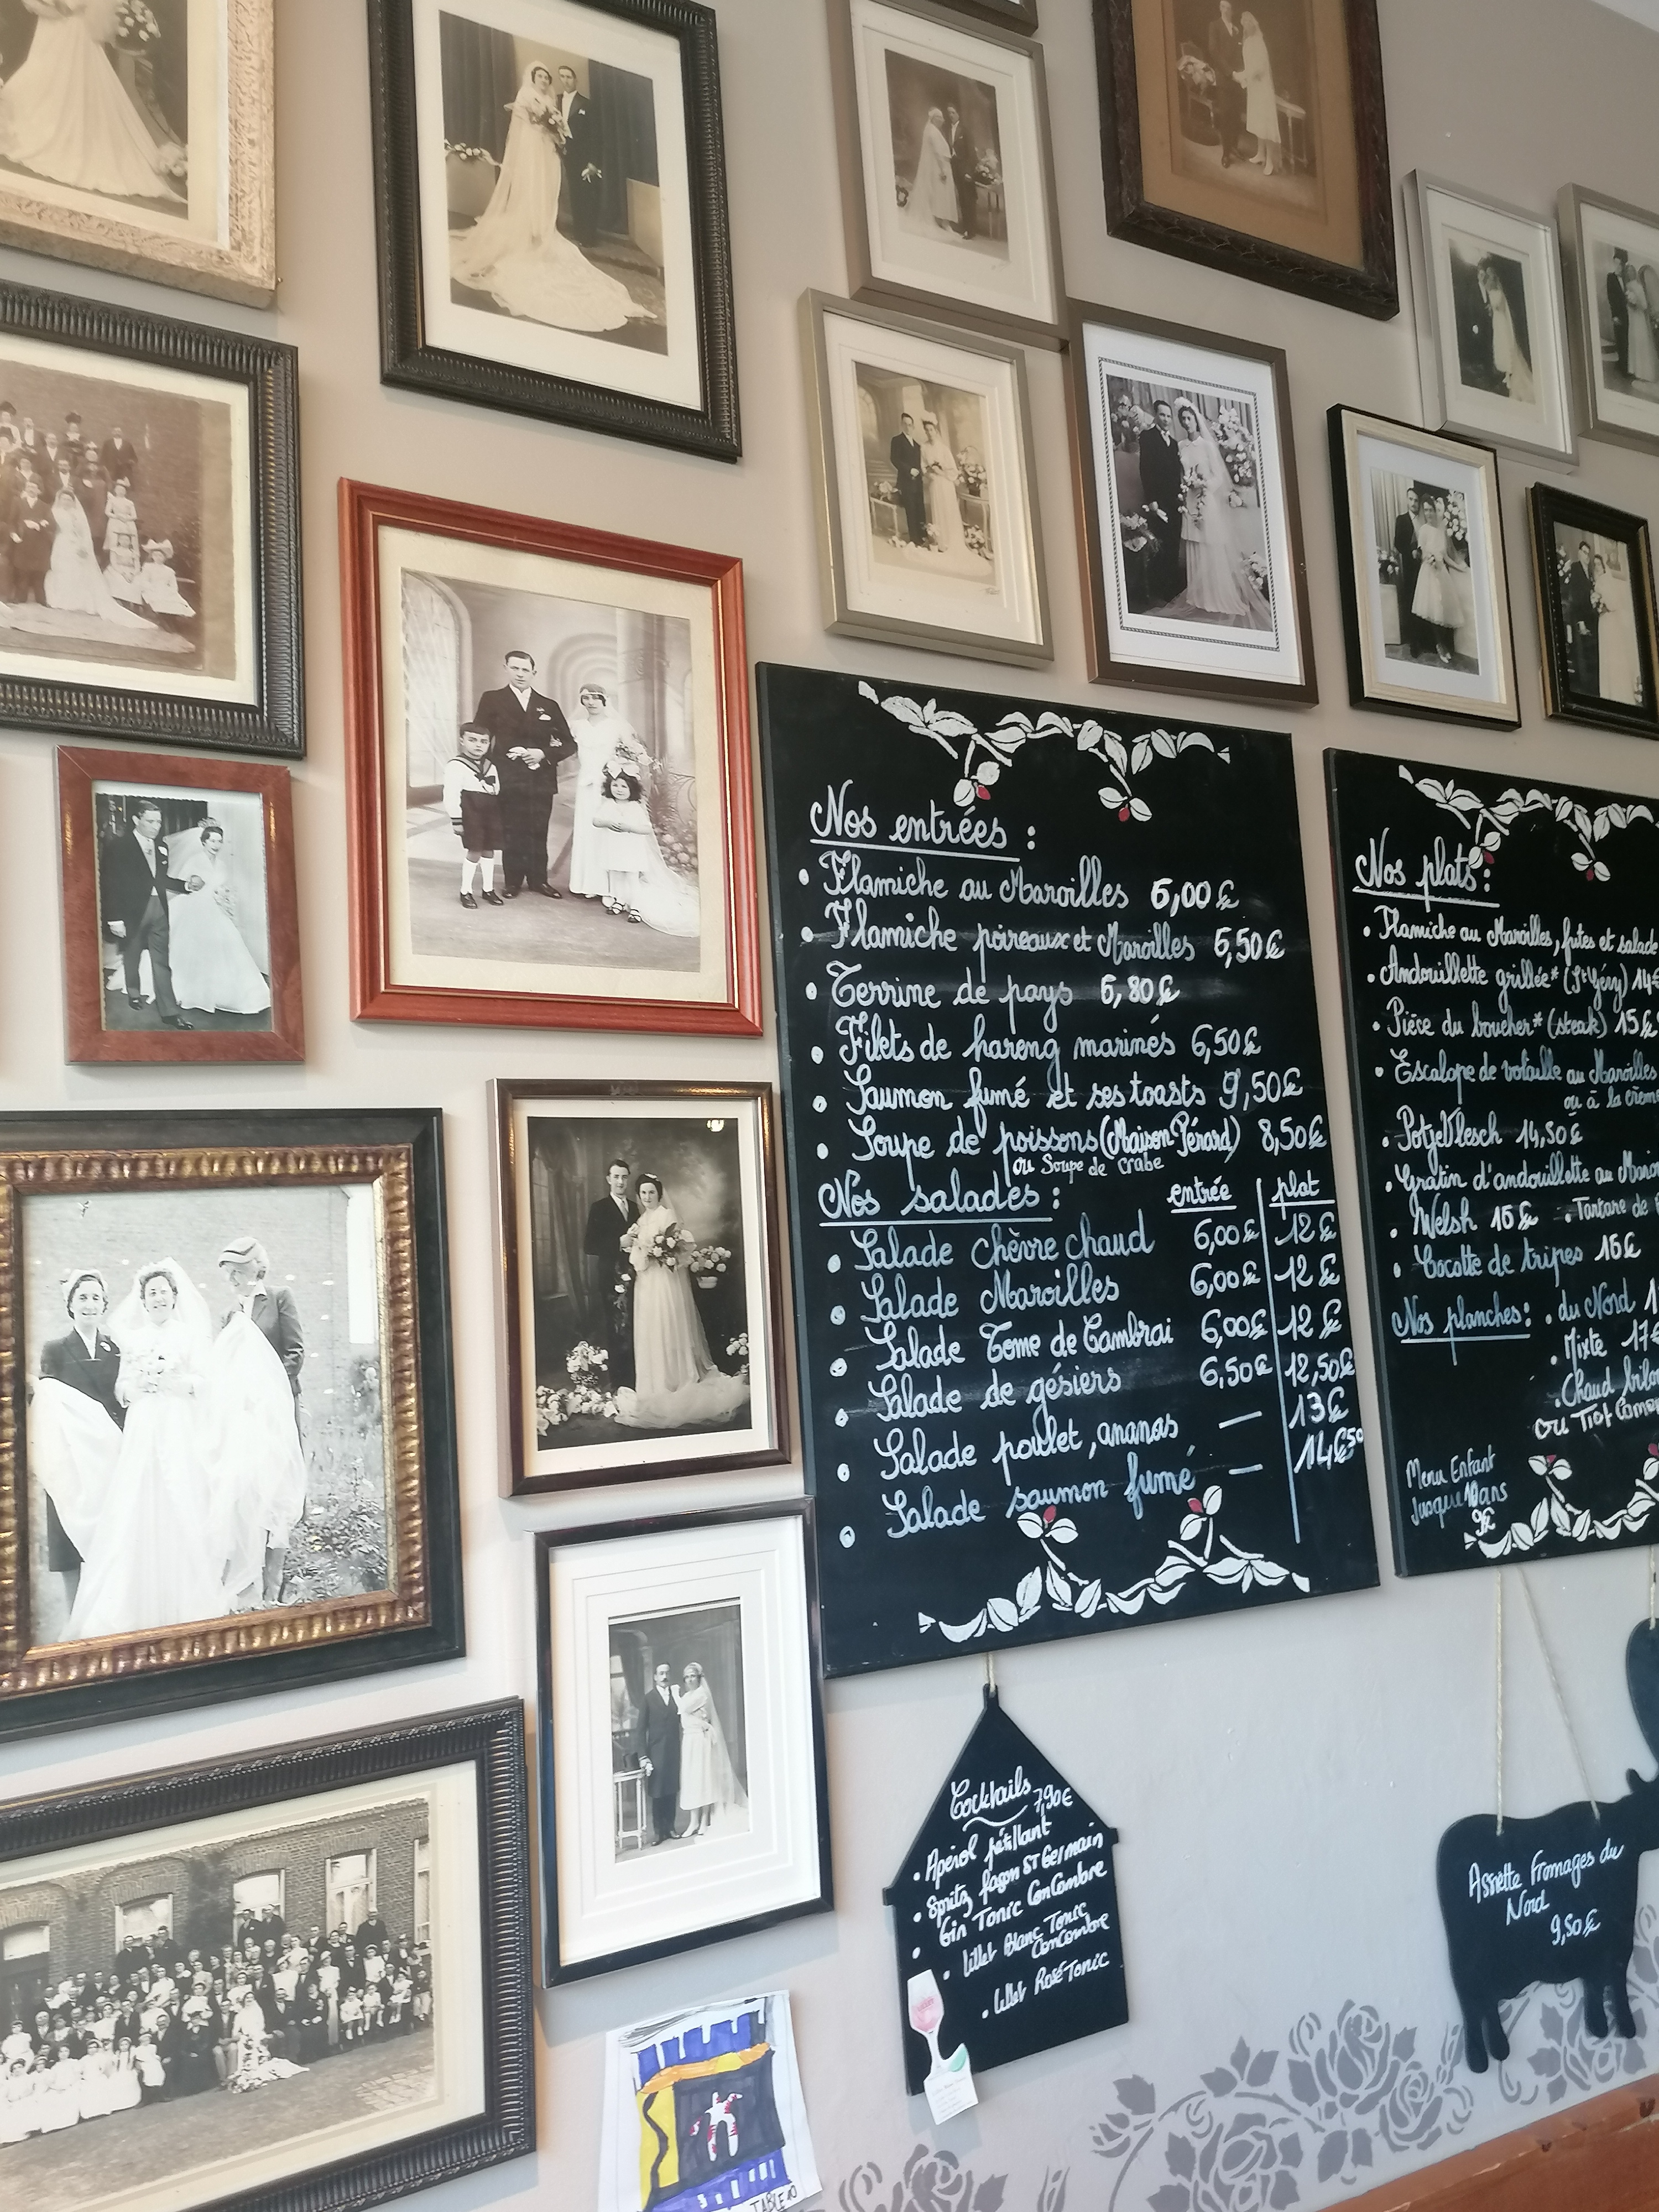 Nos entrées :
• Flamiche au Maroilles 5,00€
• Flamiche poireaux et Maroilles 5,50€
• Terrine de pays 5,80€
• Filets de hareng marinés 6,50€
• Saumon fumé et ses toasts 9,50€
• Soupe de poissons (Maison Pérard) 8,50€
ou Soupe de crabe
Nos salades : entrée plat
• Salade Chèvre chaud 6,00€ 12€
• Salade Maroilles 6,00€ 12€
• Salade Tome de Cambrai 6,00€ 12€
• Salade de gésiers 6,50€ 12,50€
• Salade poulet, ananas — 13€
• Salade saumon fumé — 14€50
Nos plats :
• Flamiche au Maroilles, frites et salade
• Andouillette grillée* (St Géry) 14€
• Pièce du boucher* (steak) 15€
• Escalope de volaille au Maroilles
ou à la crème
• Potjevlesch 14,50€
• Gratin d'andouillette au
• Welsh 15€ • Tartare de
• Cocotte de tripes 15€
Nos planches : • du Nord
• Mixte 17€
• Chaud
ou Tiot
Menu Enfant
Jusque 10 ans
9€
Cocktails 7,90€
• Apérol pétillant
• Spritz façon St Germain
• Gin Tonic Concombre
• Lillet Blanc Tonic
Concombre
• Lillet Rosé Tonic
Assiette Fromages du
Nord
9,50€
TABLE 10